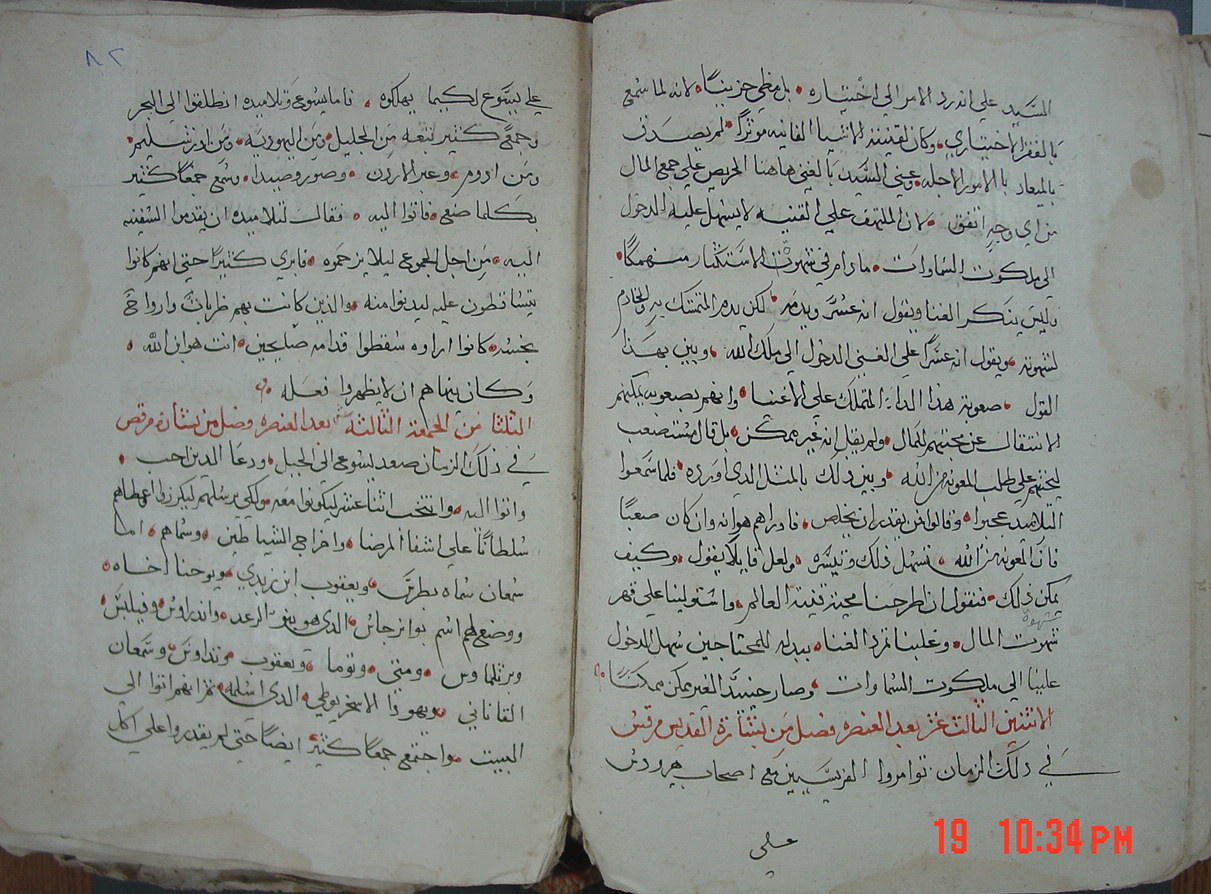 السيد علي انه رد الامر الي اختياره بل مظي حزيناً لانه لما سمع
بالفقر الاختياري وكان لقنيته الاشيا الفانيه موثراً لم يصدق
بالميعاد بالامور الاجله وعني السيد بالغني هاهنا الحريص علي جمع المال
من اي وجهٍ اتفق لان الملتهف علي القنيه لا يسهل عليه الدخول
الي ملكوت السماوات ما دام في شهوت الاستكثار منهمكاً
وليس ينكر الغنا ويقول انه عسر ويدمه لكن يدم المتمسك به والخادم
لشهوته ويقول انه عسراً علي الغني الدخول الي ملك الله ويبين بهذا
القول صعوبة هذا الدا المتملك علي الاغنيا وانهم بصعوبه يمكنهم
الانتقال عن محبتهم للمال ولم يقل انه غير ممكن بل قال مستصعب
ليحثهم علي طلب المعونه من الله وبين دلك بالمثل الدي اورده فلما سمعوا
التلاميد عجبوا وقالوا من يقدر ان يخلص فاوراهم هو انه وان كان صعباً
فان المعونه من الله تسهل ذلك وتيسره ولعل قايلاً يقول وكيف
يمكن ذلك فنقول ان اطرحنا محبة قنية العالم واستولينا علي قهر
شهوة
شهوت المال وغلبنا تمرد الغنا ببدله للمحتاجين سهل الدخول
علينا الي ملكوت السماوات وصار حينيد الغير ممكن ممكناً
الاثنين الثالث عشر بعد العنصره فصل من بشارة القديس مرقس
في دلك الزمان توامروا الفريسيين مع اصحاب هيرودس
علي
٨٢
علي يسوع لكيما يهلكوه فاما يسوع وتلاميده انطلقوا الي البحر
وجمعٌ كثير لتبعه من الجليل ومن اليهوديه ومن اورشليم
ومن ادوم وعبر الاردن وصور وصيدا وسمع جمعاً كثير
بكلما صنع فاتوا اليه فقال لتلاميده ان يقدموا السفينه
اليه من اجل الجموع ليلا يزحموه فابري كثيراً حتي انهم كانوا
يتساقطون عليه ليدنوا منه والذين كانت بهم ضربات وارواح
نجسه كانوا ادا راوه سقطوا قدامه صايحين انت هو ابن الله
وكان ينهاهم ان لا يظهروا فعله
الثلثا من الجمعة الثالثة بعد العنصره فصل من بشارة مرقص
في ذلك الزمان صعد يسوع الي الجبل ودعا الدين احب
واتوا اليه وانتخب اثنا عشر ليكونوا معه ولكي يرسلهم ليكرزوا واعطاهم
سلطاناً علي اشفا المرضا واخراج الشياطين وسماهم اما
سمعان سماه بطرس ويعقوب ابن زبدي ويوحنا اخاه
ووضع لهم اسم بوانرجاس الدي هو بنو الرعد واندراوس وفيلبس
وبرثلماوس ومتي وتوما ويعقوب وتداوس وسمعان
القاناني ويهودا الاسخريوطي الدي اسلمه ثم انهم اتوا الي
البيت واجتمع جمعاً كثير ايضاً حتي لم يقدروا علي اكل